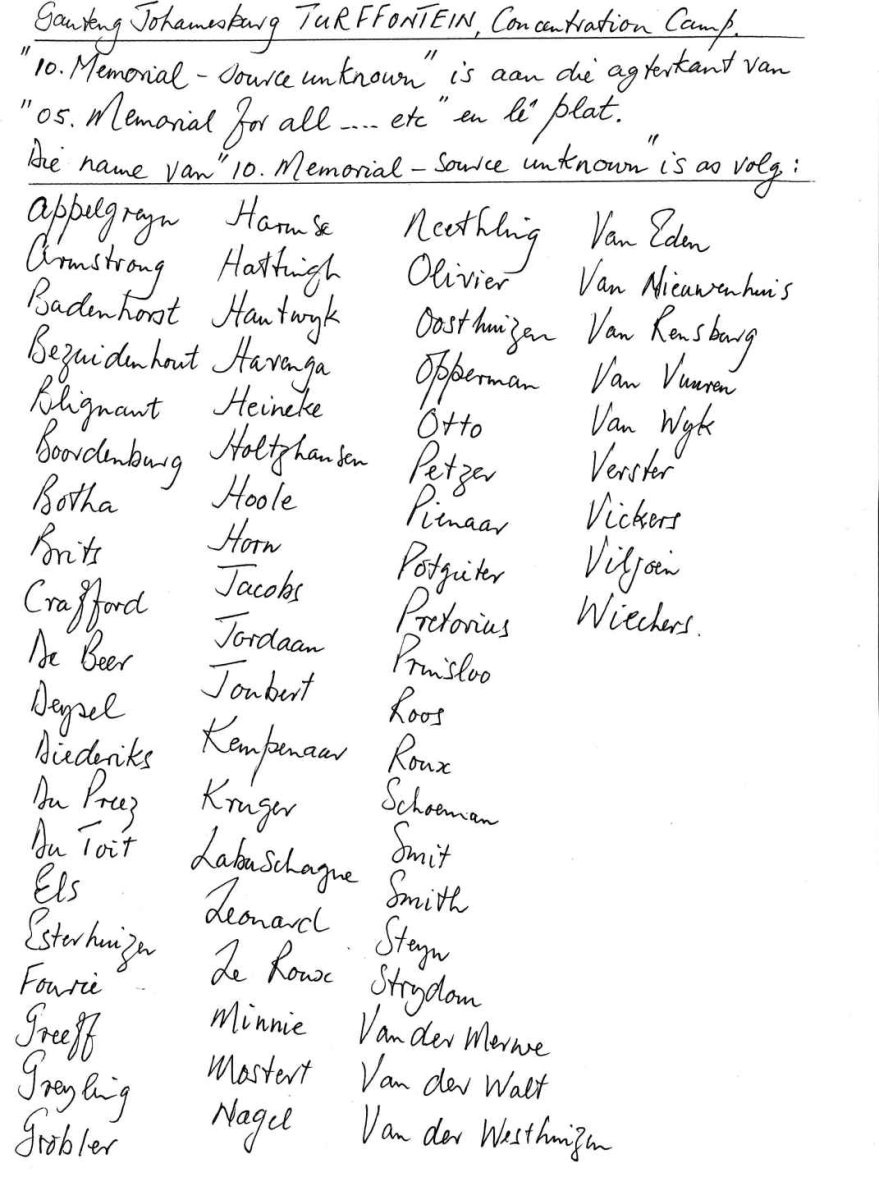 Gauteng Johannesburg TURFFONTEIN, Concentration Camp.
"10. Memorial - source unknown" is aan die agterkant van
"05. Memorial for all .... etc" en lê plat.
Die name van "10. Memorial - source unknown" is as volg:
Appelgreyn
Armstrong
Badenhorst
Bezuidenhout
Blignaut
Boordenburg
Botha
Brits
Crafford
De Beer
Deysel
Diederiks
Du Preez
Du Toit
Els
Esterhuizen
Fourie
Greeff
Greyling
Grobler
Harmse
Hattingh
Hautwyk
Havenga
Heineke
Holtzhausen
Hoole
Horn
Jacobs
Jordaan
Joubert
Kempenaar
Kruger
Labuschagne
Leonard
Le Roux
Minnie
Mostert
Nagel
Neethling
Olivier
Oosthuizen
Opperman
Otto
Petzer
Pienaar
Potgieter
Pretorius
Prinsloo
Roos
Roux
Schoeman
Smit
Smith
Steyn
Strydom
Van der Merwe
Van der Walt
Van der Westhuizen
Van Eden
Van Nieuwenhuis
Van Rensburg
Van Vuuren
Van Wyk
Verster
Vickers
Viljoen
Wiechers.